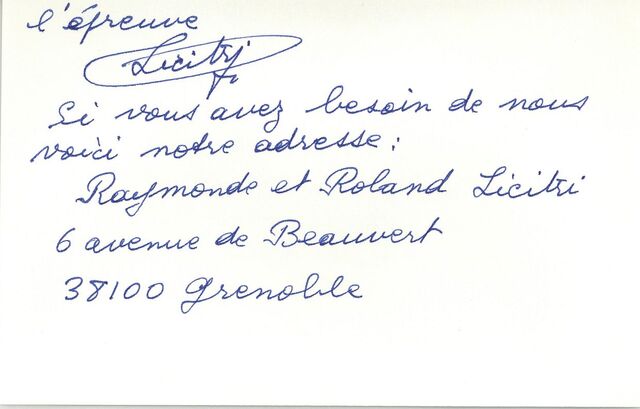 l'épreuve
Licitri
Si vous avez besoin de nous
voici notre adresse :
Raymonde et Roland Licitri
6 avenue de Beauvert
38100 Grenoble